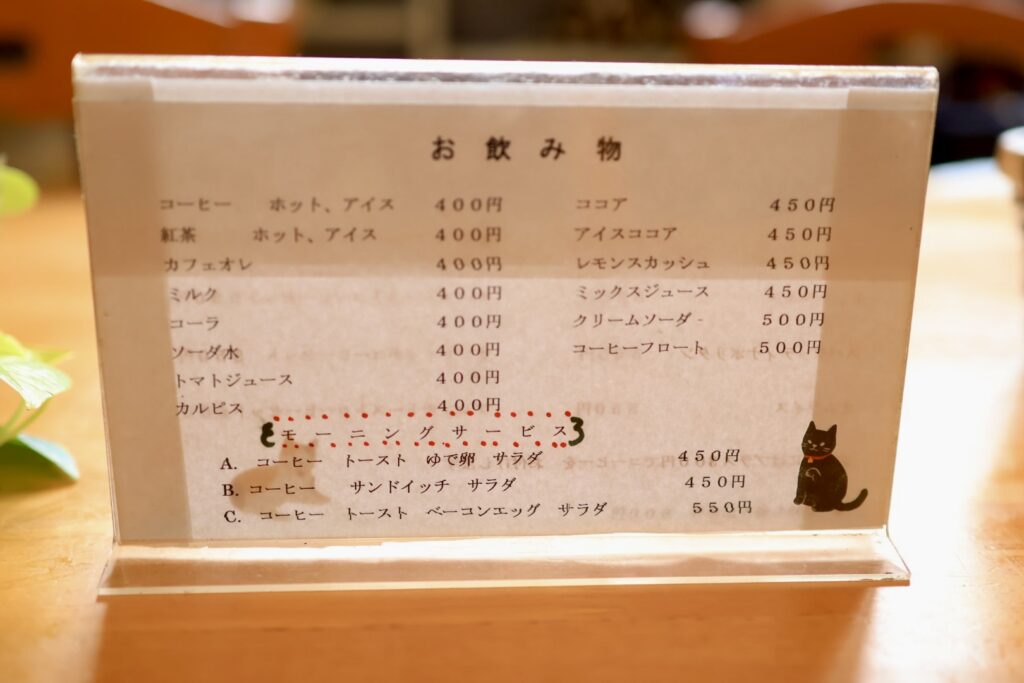 お飲み物
コーヒー　ホット、アイス　４００円
紅茶　ホット、アイス　４００円
カフェオレ　４００円
ミルク　４００円
コーラ　４００円
ソーダ水　４００円
トマトジュース　４００円
カルピス　４００円
ココア　４５０円
アイスココア　４５０円
レモンスカッシュ　４５０円
ミックスジュース　４５０円
クリームソーダ　５００円
コーヒーフロート　５００円
モーニングサービス
A.　コーヒー　トースト　ゆで卵　サラダ　４５０円
B.　コーヒー　サンドイッチ　サラダ　４５０円
C.　コーヒー　トースト　ベーコンエッグ　サラダ　５５０円